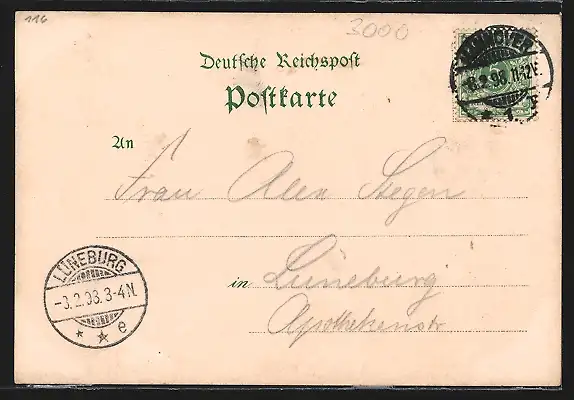 116
3000
Deutsche Reichspost
Postkarte
HANNOVER
2.98. 11-12V.
* 1 y
An
Frau Alex Stegen
in Lüneburg
Apothekenstr
LÜNEBURG
-3.2.98. 3-4N.
* * e